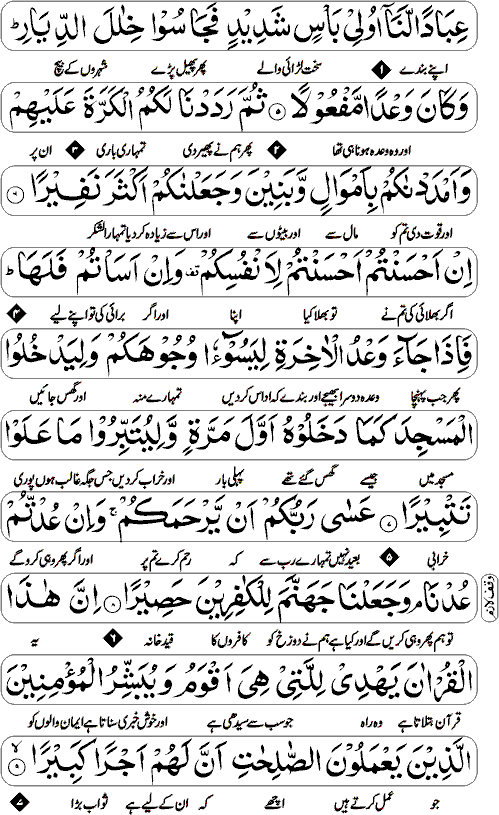 عِبَادًا لَّنَاۤ اُولِیْ بَاْسٍ شَدِیْدٍ فَجَاسُوْا خِلٰلَ الدِّیَارِؕ
اپنے بندے ۱ سخت لڑائی والے پھر پھیل پڑے شہروں کے بیچ
وَكَانَ وَعْدًا مَّفْعُوْلًا ۵ ثُمَّ رَدَدْنَا لَكُمُ الْكَرَّةَ عَلَیْهِمْ
اور وہ وعدہ ہونا ہی تھا ۲ پھر ہم نے پھیر دی تمہاری باری ۳ ان پر
وَاَمْدَدْنٰكُمْ بِاَمْوَالٍ وَّبَنِیْنَ وَجَعَلْنٰكُمْ اَكْثَرَ نَفِیْرًا ۶
اور قوت دی تم کو مال سے اور بیٹوں سے اور اس سے زیادہ کر دیا تمہارا لشکر
اِنْ اَحْسَنْتُمْ اَحْسَنْتُمْ لِاَنْفُسِكُمْ وَاِنْ اَسَاْتُمْ فَلَهَاؕ
اگر بھلائی کی تم نے تو بھلا کیا اپنا اور اگر برائی کی تو اپنے لیے ۴
فَاِذَا جَآءَ وَعْدُ الْاٰخِرَةِ لِیَسُوْٓءٗا وُجُوْهَكُمْ وَلِیَدْخُلُوا
پھر جب پہنچا وعدہ دوسرا بھیجے اور بندے کہ اداس کر دیں تمہارے منہ اور گھس جائیں
الْمَسْجِدَ كَمَا دَخَلُوْهُ اَوَّلَ مَرَّةٍ وَّلِیُتَبِّرُوْا مَا عَلَوْا
مسجد میں جیسے گھس گئے تھے پہلی بار اور خراب کر دیں جس جگہ غالب ہوں پوری
تَتْبِیْرًا ۷ عَسٰی رَبُّكُمْ اَنْ یَّرْحَمَكُمْۚ وَاِنْ عُدْتُّمْ
خرابی ۵ بعید نہیں تمہارے رب سے کہ رحم کرے تم پر اور اگر پھر وہی کرو گے
عُدْنَاۘ وَجَعَلْنَا جَهَنَّمَ لِلْكٰفِرِیْنَ حَصِیْرًا ۸ اِنَّ هٰذَا
وقف لازم
تو ہم پھر وہی کریں گے اور کیا ہے ہم نے دوزخ کو کافروں کا قید خانہ ۶ یہ
الْقُرْاٰنَ یَهْدِیْ لِلَّتِیْ هِیَ اَقْوَمُ وَیُبَشِّرُ الْمُؤْمِنِیْنَ
قرآن بتلاتا ہے وہ راہ جو سب سے سیدھی ہے اور خوش خبری سناتا ہے ایمان والوں کو
الَّذِیْنَ یَعْمَلُوْنَ الصّٰلِحٰتِ اَنَّ لَهُمْ اَجْرًا كَبِیْرًا ۹ۙ
جو عمل کرتے ہیں اچھے کہ ان کے لیے ہے ثواب بڑا ۷